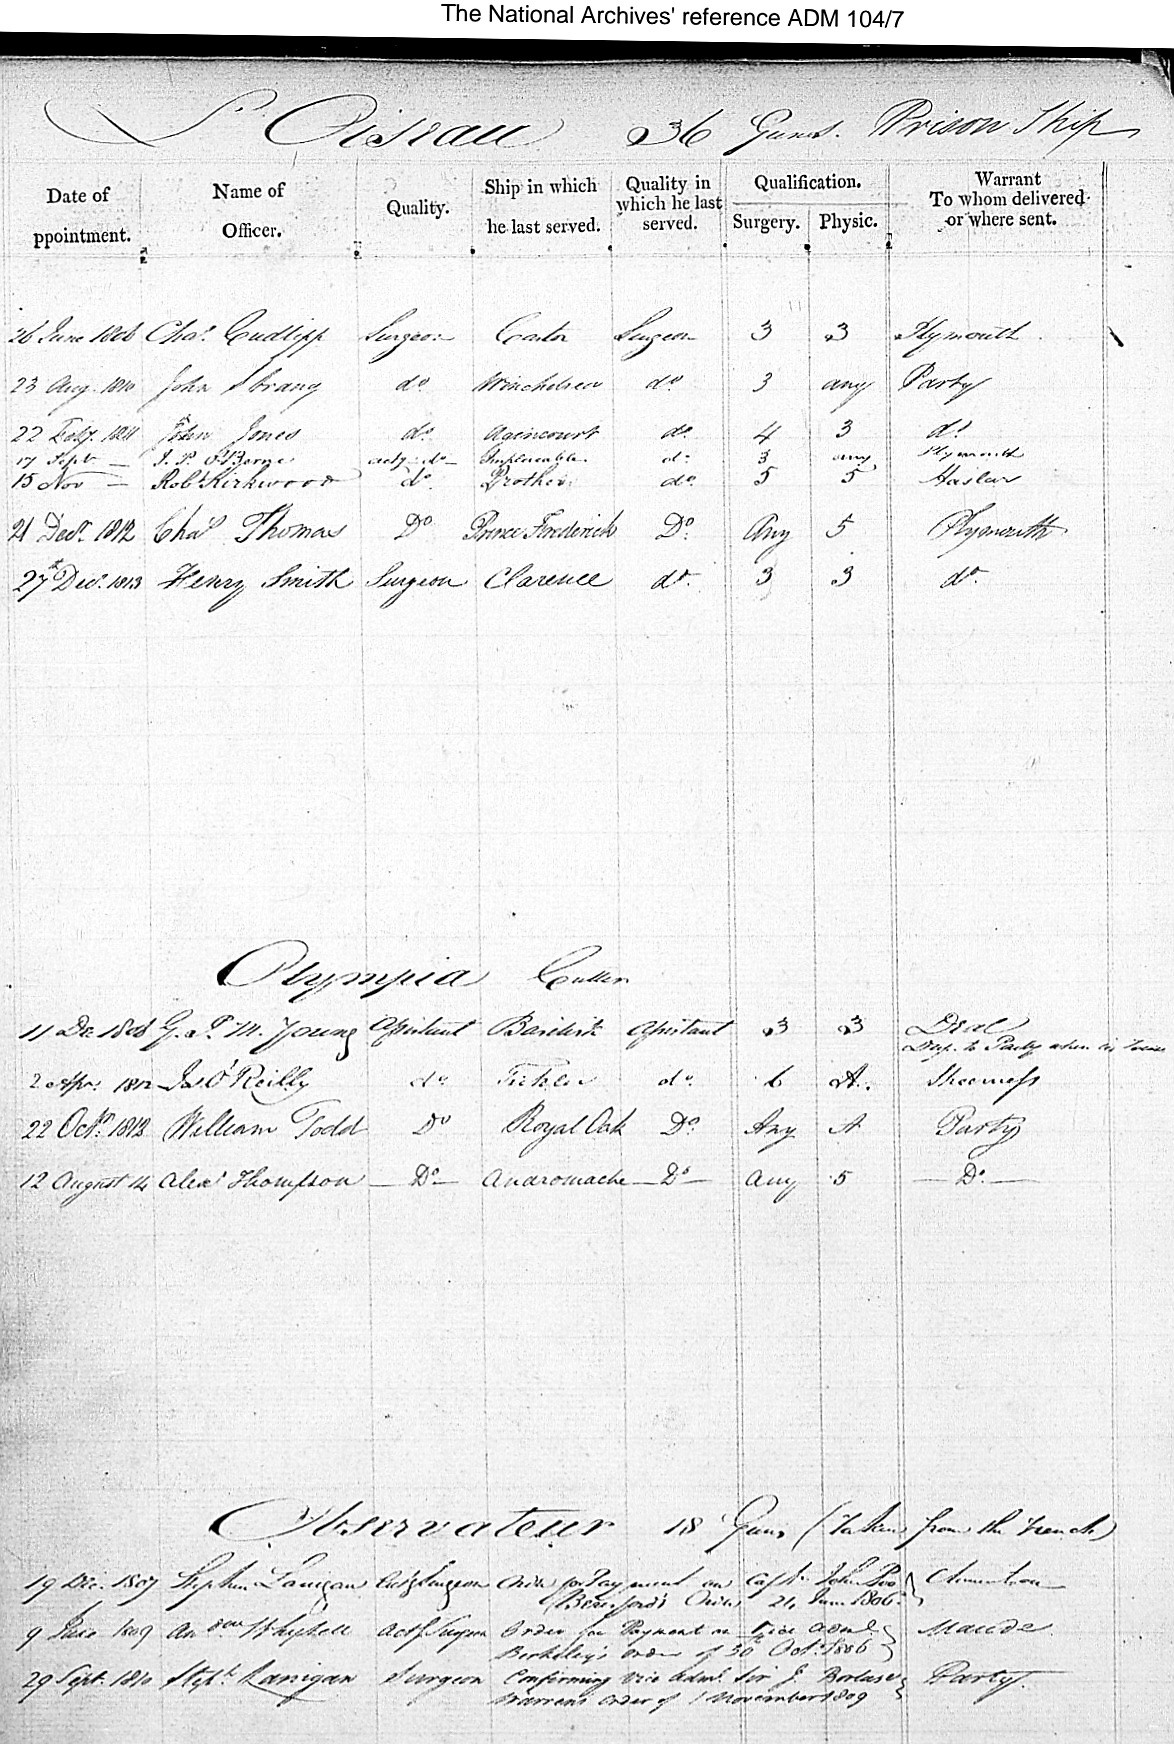 The National Archives' reference ADM 104/7
L'Oiseau 36 Guns. Prison Ship
Date of ppointment. Name of Officer. Quality. Ship in which he last served. Quality in which he last served. Qualification. Surgery. Physic. Warrant To whom delivered or where sent.
26 June 1806 Chas. Cudlipp Surgeon Castor Surgeon 3 3 Plymouth
23 Aug. 1810 John Strang do Winchelsea do 3 any Party
22 Feby. 1811 John Jones do. Agincourt do. 4 3 do.
17 Sept — J. P. O'Berne actg do Implacable do. 3 any Plymouth
15 Nov — Robt Kirkwood do. Brothers do. 5 5 Haslar
21 Decr. 1812 Chas Thomas Do Prince Frederick Do. Any 5 Plymouth
27th Decr. 1813 Henry Smith Surgeon Clarence do. 3 3 do.
Olympia Cutter
11 De 1808 G. P. M. Young Assistant Assistant 3 3 Deal
Dup. to Party when in Town
2 Apr. 1812 Jas O'Reilly do. Tickler do. 6 A. Sheerness
22 Octr. 1813 William Todd Do Royal Oak Do. Any A Party
12 August 14 Alexr Thompson — Do — Andromache — Do — any 5 — Do. —
Observateur 18 Guns (Taken from the French)
19 Dec. 1807 Stephen Lanigan Actg Surgeon Order for Payment on Captn. John Poo
Beresford's Order 21 June 1806
9 June 1809 Andrew Whytell Actg Surgeon Order for Payment on Vice Adml Maude
Berkeley's order of 30th Octr. 1806
29 Sept. 1810 Stepn. Lanigan Surgeon Confirming Vice Adml. Sir J. Borlase Party.
Warren's order of 1 November 1809